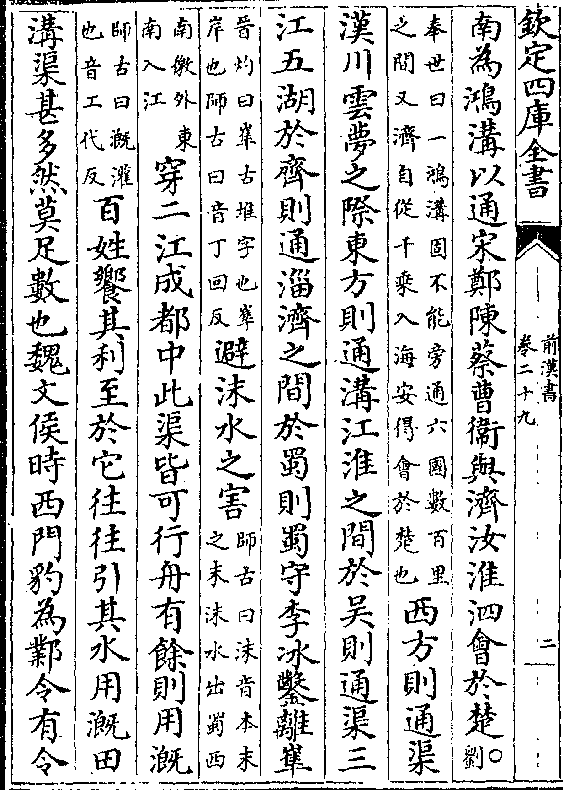 欽定四庫全書
前漢書
卷二十九
二
南為鴻溝以通宋鄭陳蔡曹衞與濟汝淮泗會於楚○劉
奉世曰一鴻溝固不能旁通六國數百里
之間又濟自從千乘入海安得會於楚也
西方則通渠
漢川雲夢之際東方則通溝江淮之間於吳則通渠三
江五湖於齊則通淄濟之間於蜀則蜀守李冰鑿離𡹐
晉灼曰𡹐古堆字也𡹐
岸也師古曰音丁回反
避沬水之害
師古曰沬音本末
之末沬水出蜀西
南徼外東
南入江
穿二江成都中此渠皆可行舟有餘則用溉
師古曰溉灌
也音工代反
百姓饗其利至於它往往引其水用溉田
溝渠甚多然莫足數也魏文侯時西門豹為鄴令有令